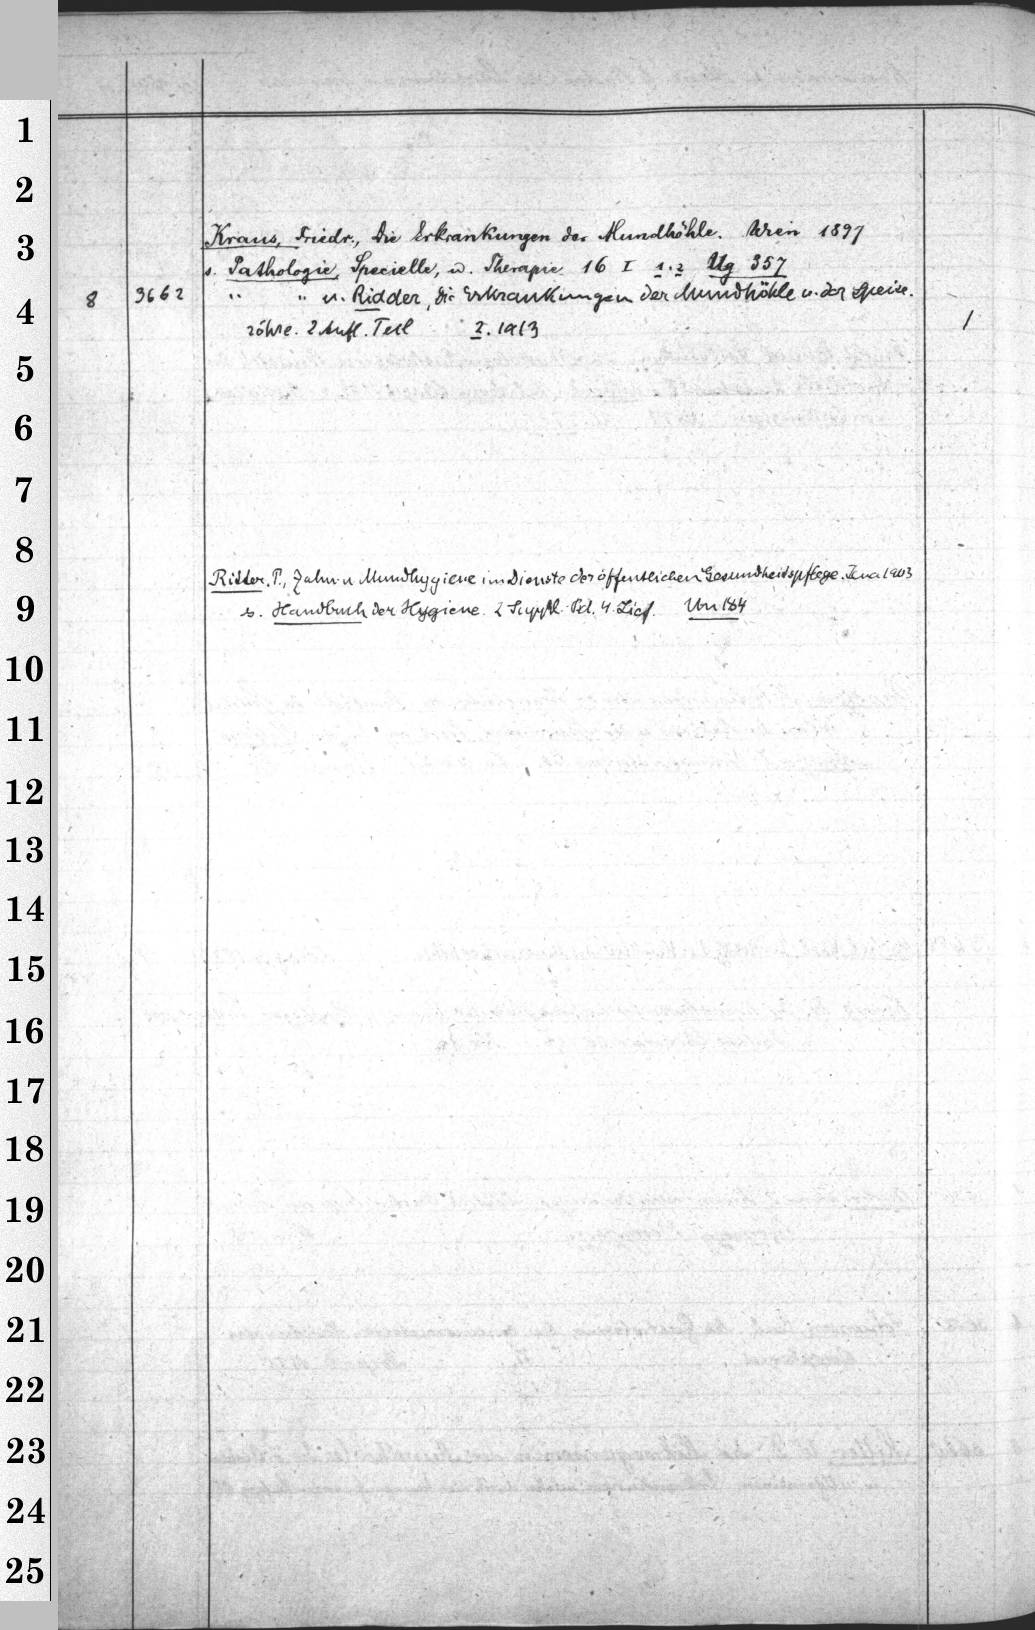 1
2
3
4
5
6
7
8
9
10
11
12
13
14
15
16
17
18
19
20
21
22
23
24
25
Kraus, Friedr., Die Erkrankungen der Mundhöhle. Wien 1897
s. Pathologie, Specielle, u. Therapie 16 I 1.2 Ug 357
8 3662 " " u. Ridder, die Erkrankungen der Mundhöhle u. der Speise-
röhre. 2 Aufl. Teil I. 1913 1
Ritter, P., Zahn u Mundhygiene im Dienste der öffentlichen Gesundheitspflege. Jena 1903
s. Handbuch der Hygiene. 2 Suppl. Bd. 4. Lief. Un 184